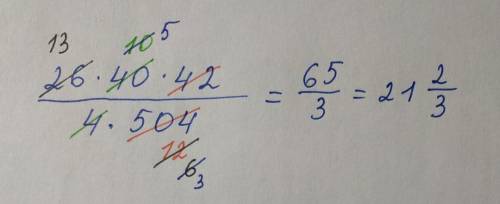 13 10 5
26 · 40 · 42
4 · 504 = 65/3 = 21 2/3
12
6 3